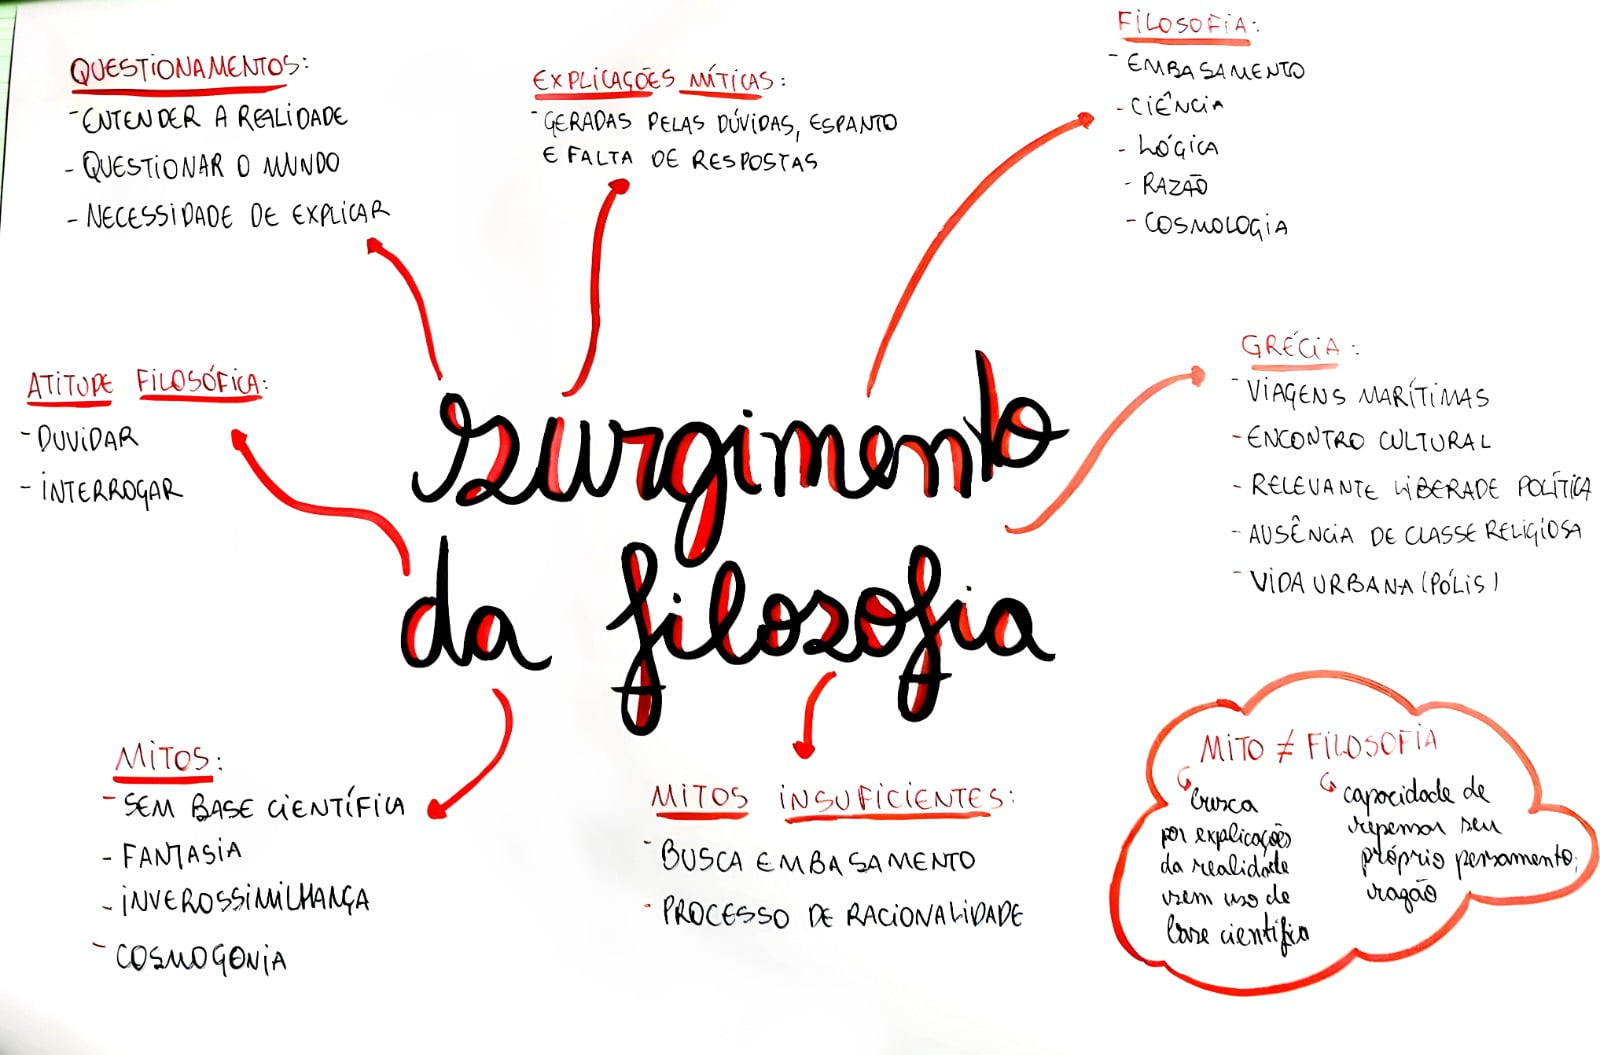 QUESTIONAMENTOS:
- ENTENDER A REALIDADE
- QUESTIONAR O MUNDO
- NECESSIDADE DE EXPLICAR
EXPLICAÇÕES MÍTICAS:
- GERADAS PELAS DÚVIDAS, ESPANTO
E FALTA DE RESPOSTAS
FILOSOFIA:
- EMBASAMENTO
- CIÊNCIA
- LÓGICA
- RAZÃO
- COSMOLOGIA
ATITUDE FILOSÓFICA:
- DUVIDAR
- INTERROGAR
surgimento
da filosofia
GRÉCIA:
- VIAGENS MARÍTIMAS
- ENCONTRO CULTURAL
- RELEVANTE LIBERADE POLÍTICA
- AUSÊNCIA DE CLASSE RELIGIOSA
- VIDA URBANA (PÓLIS)
MITOS:
- SEM BASE CIENTÍFICA
- FANTASIA
- INVEROSSIMILHANÇA
- COSMOGONIA
MITOS INSUFICIENTES:
- BUSCA EMBASAMENTO
- PROCESSO DE RACIONALIDADE
MITO ≠ FILOSOFIA
busca
por explicações
da realidade
sem uso de
base científica
capacidade de
repensar seu
próprio pensamento;
razão